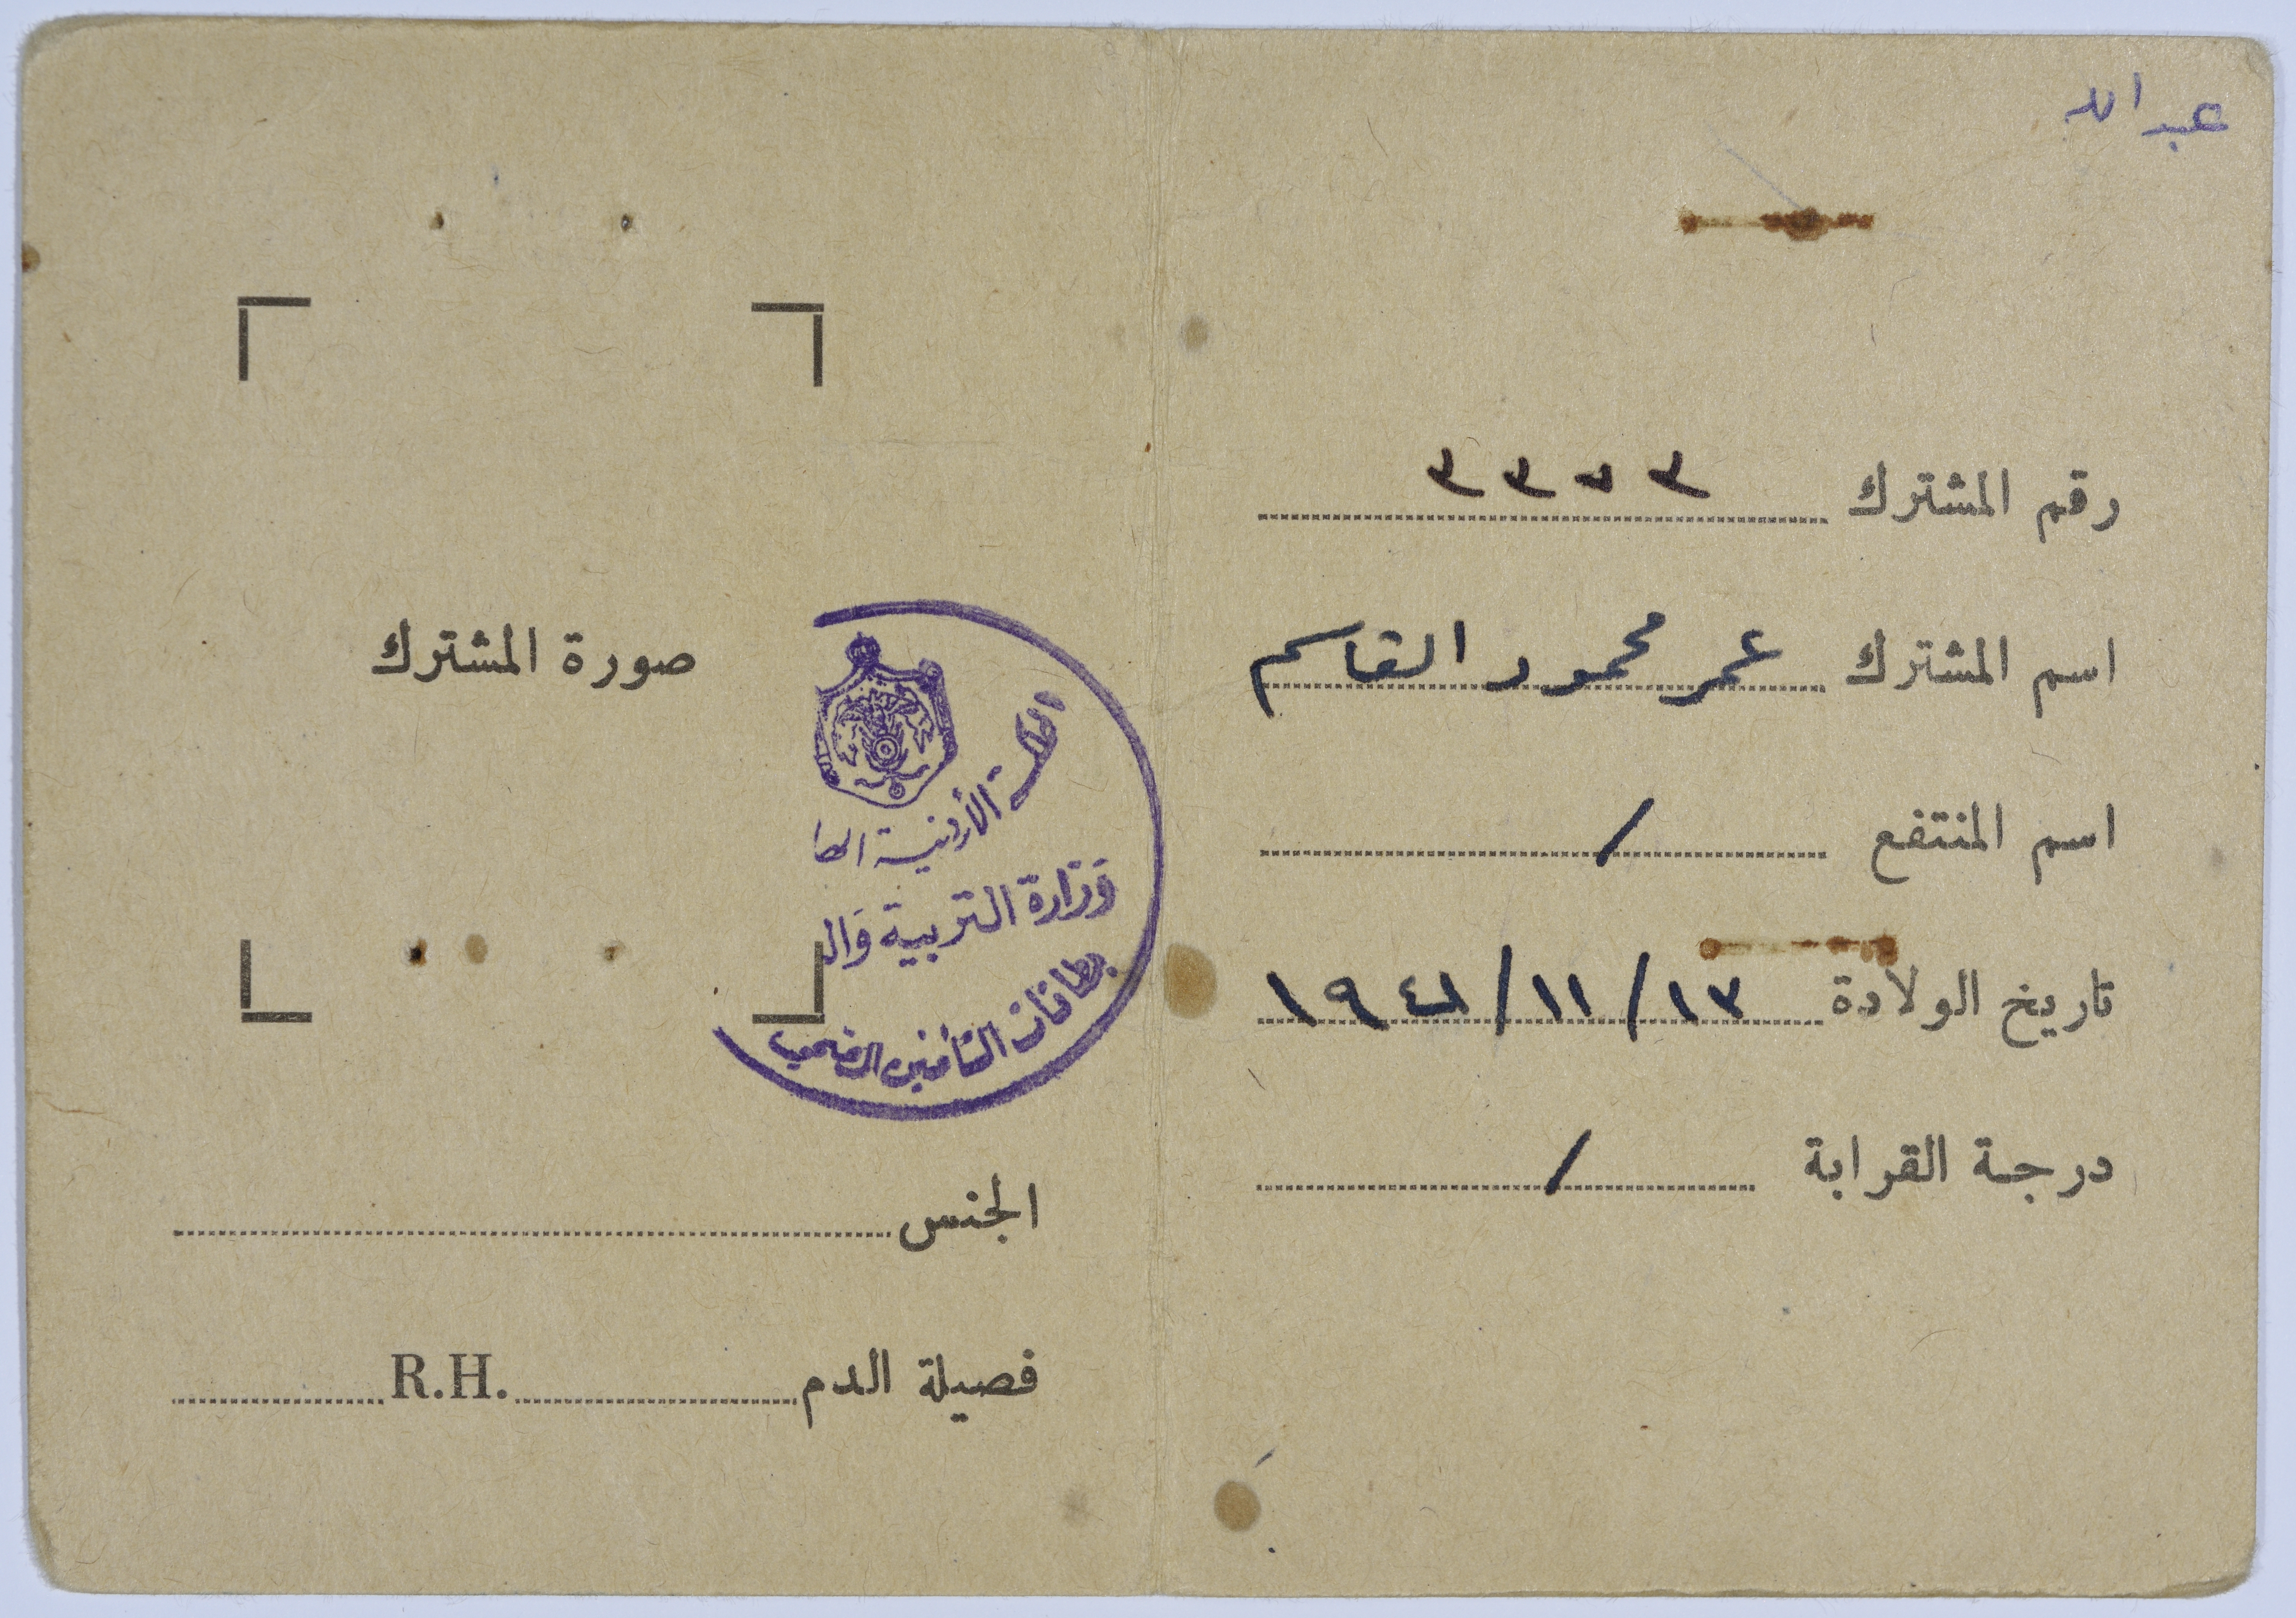 عبد الله
رقم المشترك
اسم المشترك عمر محمود القاسم
اسم المنتفع /
تاريخ الولادة ١٣/١١/١٩٤١
درجة القرابة /
صورة المشترك
المملكة الأردنية الها
وزارة التربية وال
بطاقات التأمين الصحي
الجنس
فصيلة الدم R.H.